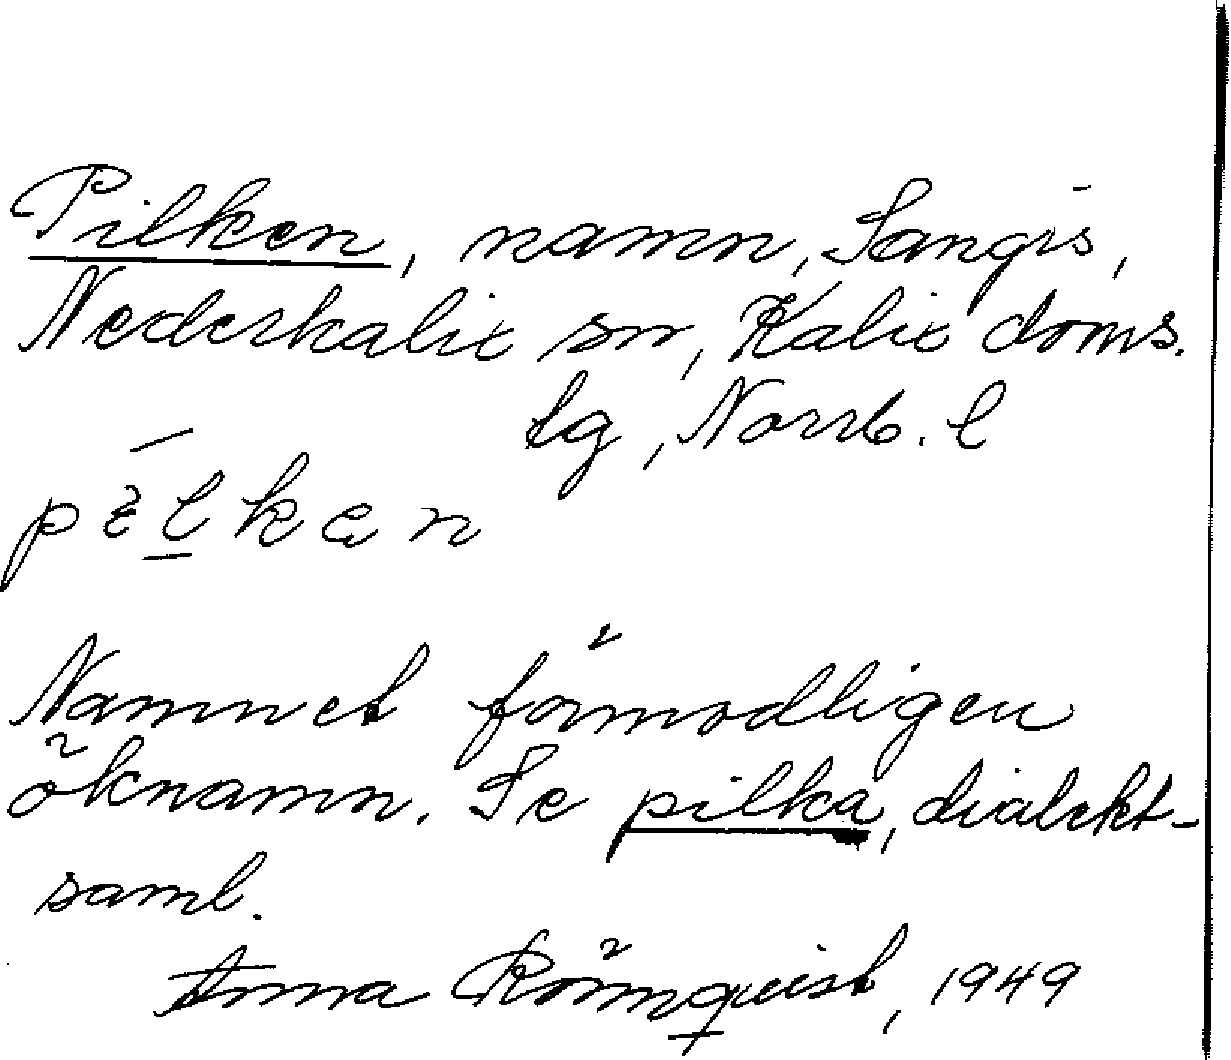 Pilken, namn, Sangis,
Nederkalix sn, Kalix doms.
lg, Norrb. l
Namnet förmodligen
öknamn. Se pilka, dialekt-
saml.
Anna Rönnqvist, 1949